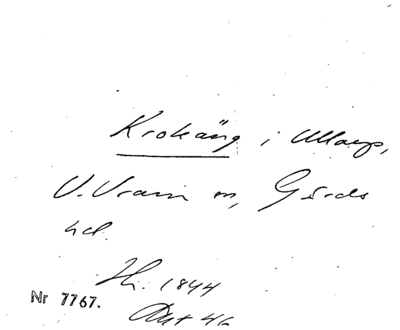 Krokäng i Ullarp,
V. Vram m, Gärds
hd.
Th. 1844
Nr 7767.
46